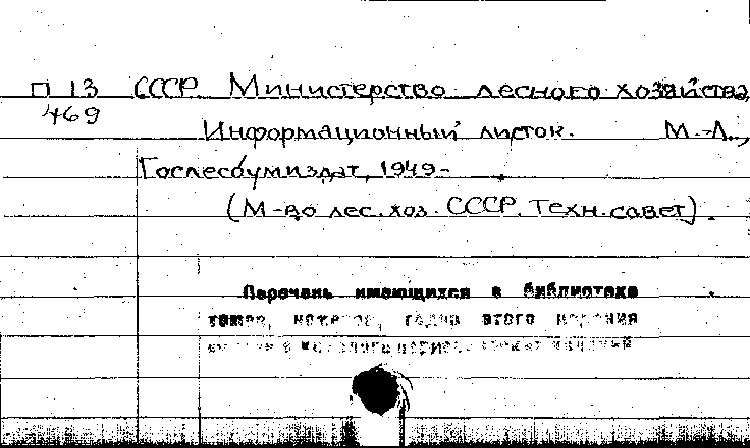 П 13 СССР. Министерство лесного хозяйства.
469 Информационный листок. М.-Л.,
Гослесбумиздат, 1949-
(М-во лес. хоз. СССР. Техн. совет).
Перечень имеющихся в библиотеке
томов, номеров, годов этого издания